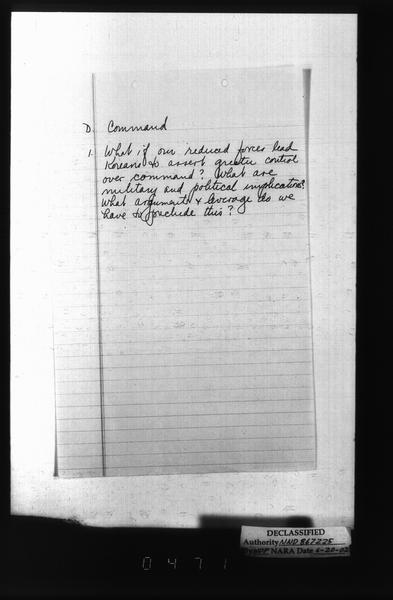 D. Command
1. What if our reduced forces lead
Koreans to assert greater control
over command? What are
military and political implications?
What arguments & leverage do we
have to preclude this?
DECLASSIFIED
Authority NND 867225
NARA Date 6-20-02
0471